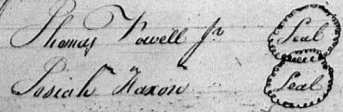 Thomas Powell Jr Seal
Josiah Haxon Seal